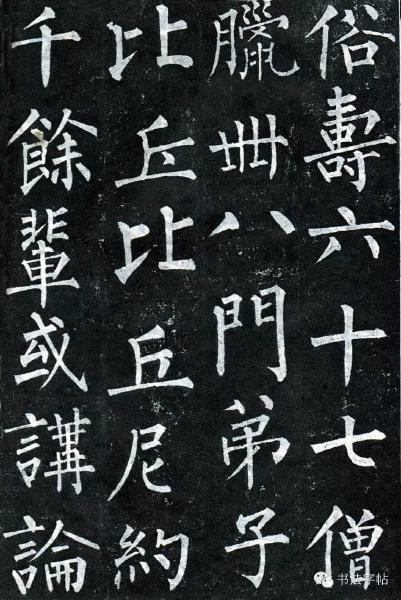 俗壽六十七僧
臘卌八門弟子
比丘比丘尼約
千餘輩或講論
书法字帖